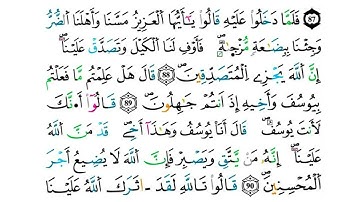 87 فَلَمَّا دَخَلُواْ عَلَيْهِ قَالُواْ يَٰٓأَيُّهَا اَلْعَزِيزُ مَسَّنَا وَأَهْلَنَا اَلضُّرُّ
وَجِئْنَا بِبِضَٰعَةٍ مُّزْجَىٰةٍ فَأَوْفِ لَنَا اَلْكَيْلَ وَتَصَدَّقْ عَلَيْنَآ
إِنَّ اَللَّهَ يَجْزِے اِلْمُتَصَدِّقِينَ 88 قَالَ هَلْ عَلِمْتُم مَّا فَعَلْتُم
بِيُوسُفَ وَأَخِيهِ إِذَ اَنتُمْ جَٰهِلُونَ 89 قَالُوٓاْ أَٰ۟نَّكَ
لَأَنتَ يُوسُفُ قَالَ أَنَا يُوسُفُ وَهَٰذَآ أَخِے قَدْ مَنَّ اَللَّهُ
عَلَيْنَآ إِنَّهُۥ مَنْ يَّتَّقِ وَيَصْبِرْ فَإِنَّ اَللَّهَ لَا يُضِيعُ أَجْرَ
اَلْمُحْسِنِينَ 90 قَالُواْ تَاللَّهِ لَقَدَ ـ اثَرَكَ اَللَّهُ عَلَيْنَا